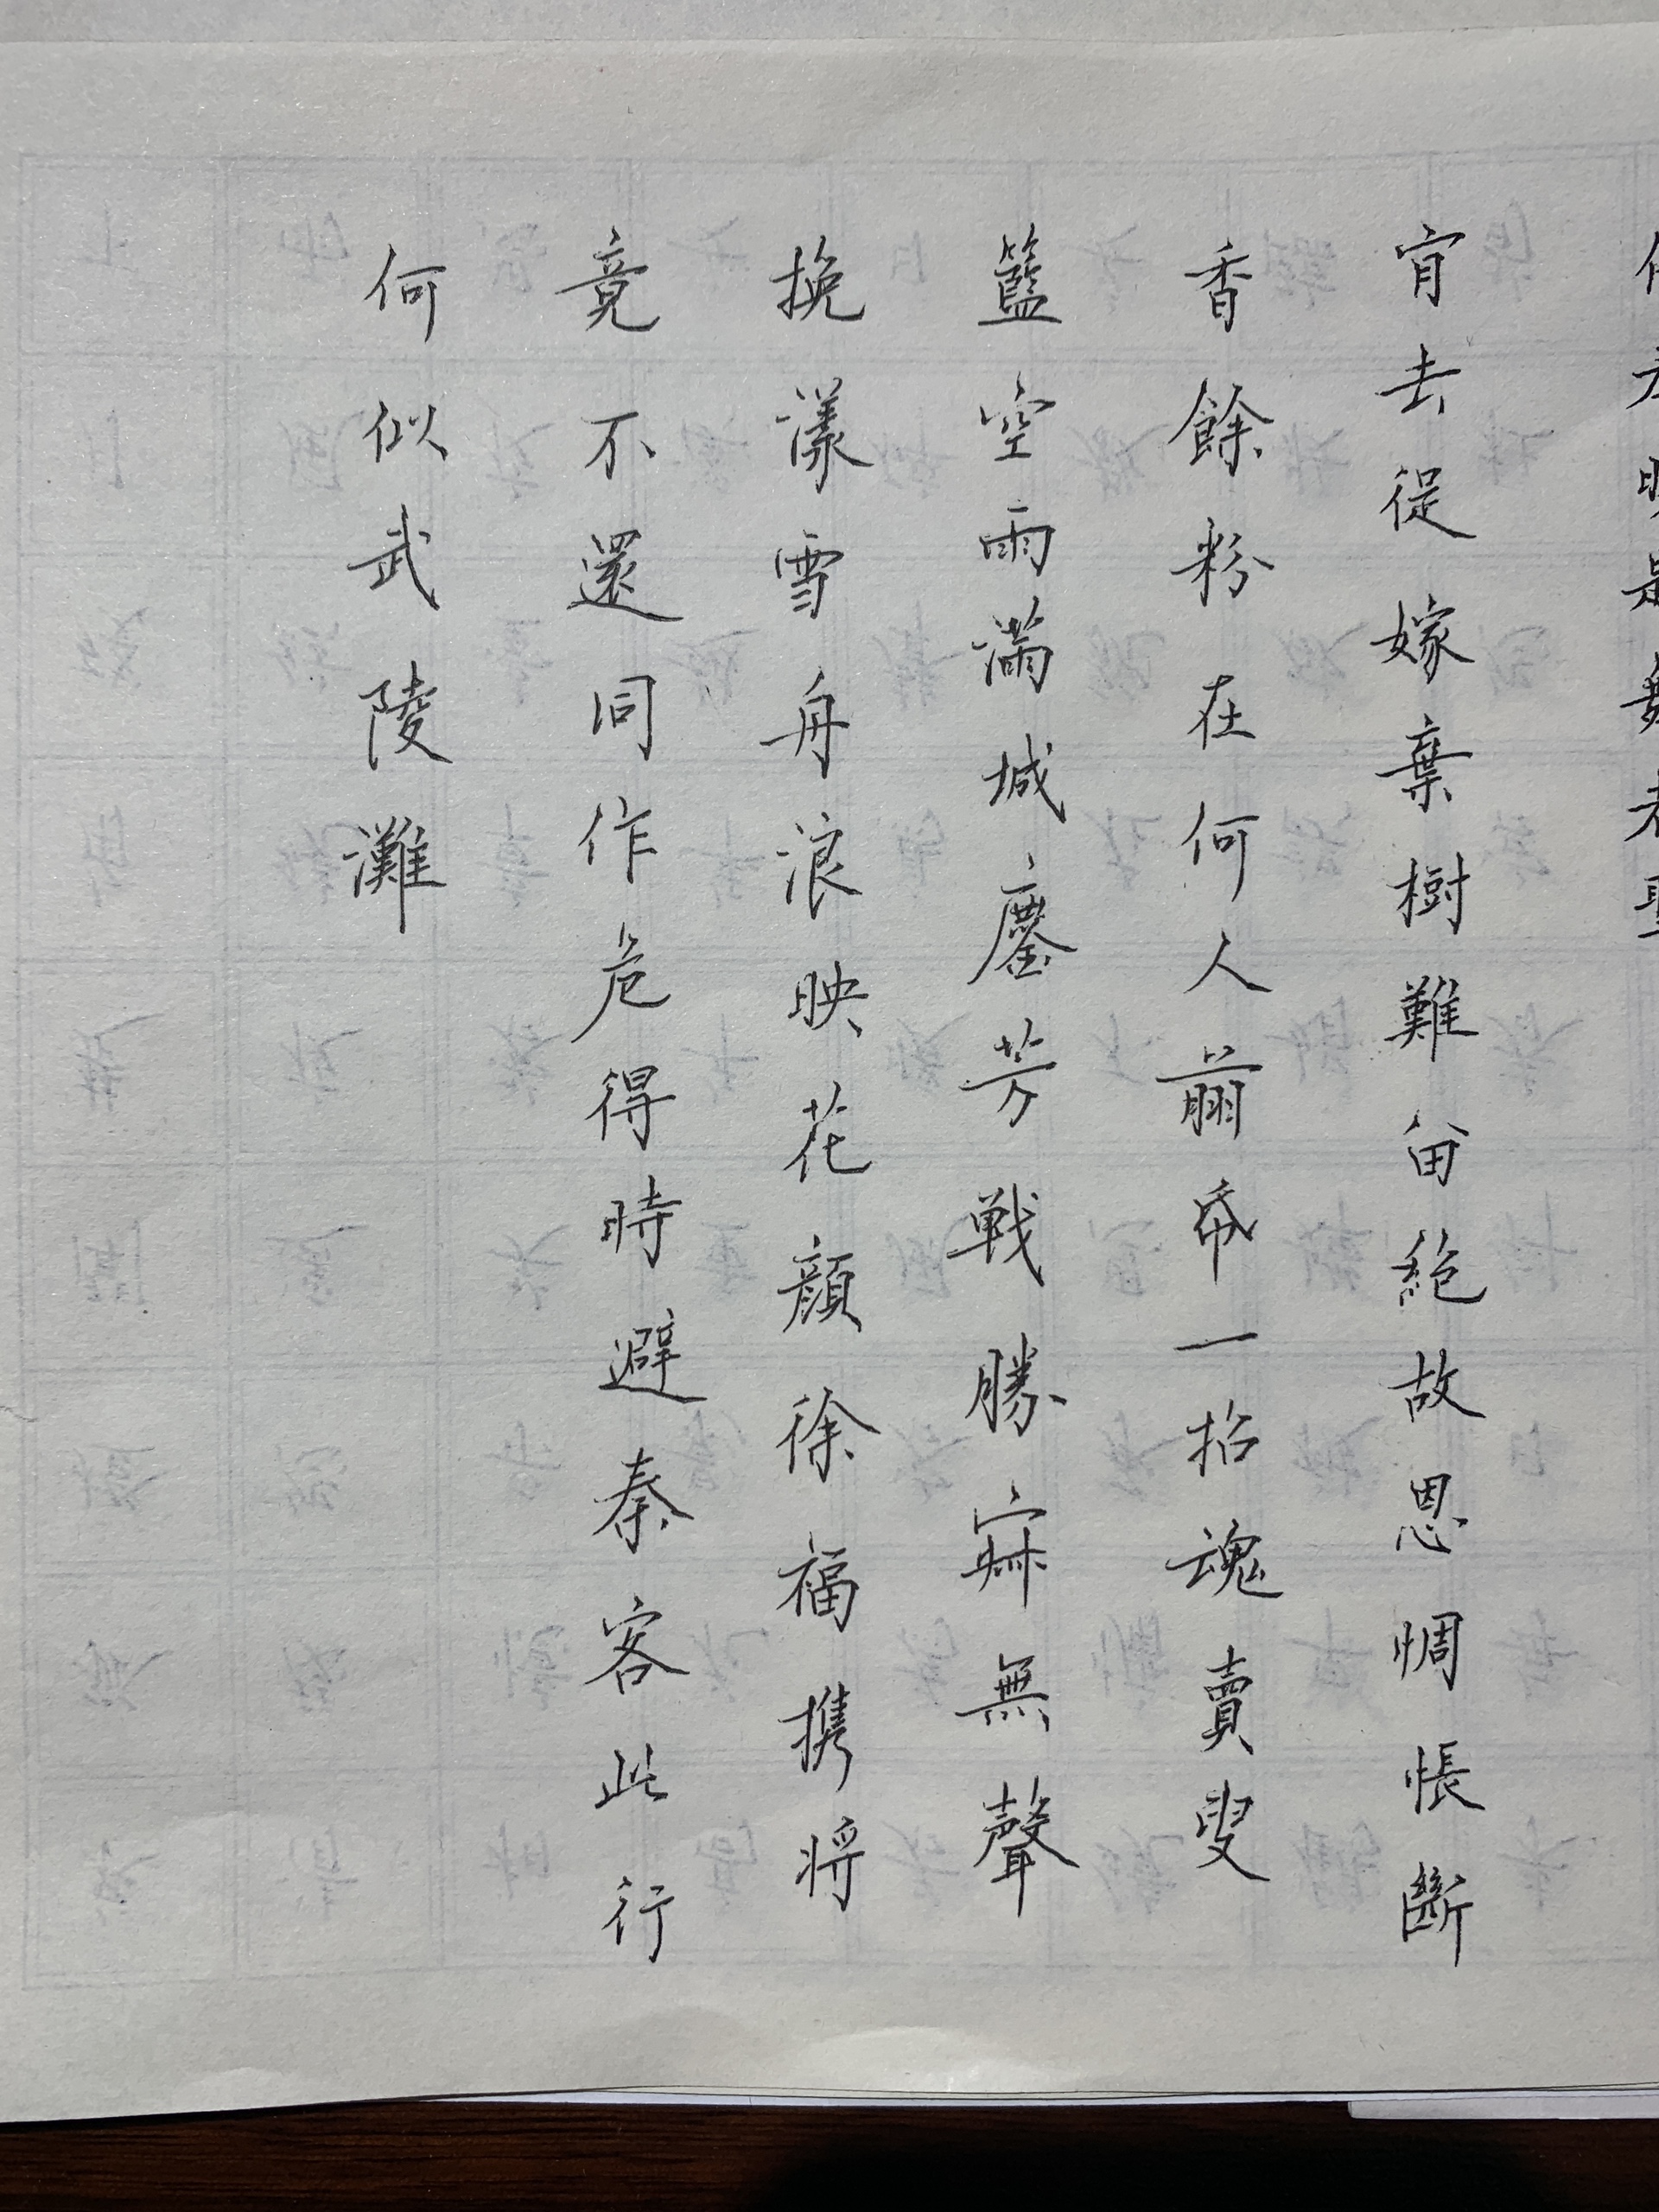 肎去従嫁棄樹難留絶故恩惆悵斷
香餘粉在何人翦帋一招魂賣叟
籃空雨滿城鏖芳戦勝寂無聲
挽漾雪舟浪映花顔徐福携将
竟不還同作危得時避秦客此行
何似武陵灘